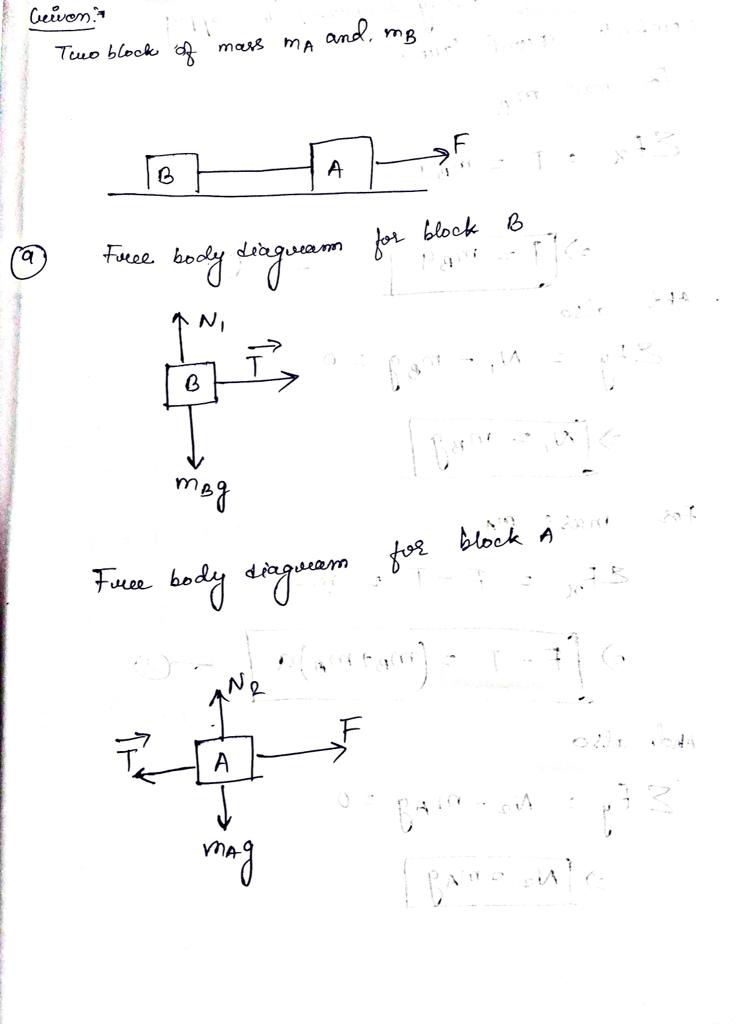 Given:→
Two block of mass mA and, mB
B
A
F
(a)
Free body diagram for block B
N1
B
T⃗
mBg
Free body diagram for block A
N2
T⃗
A
F
mAg